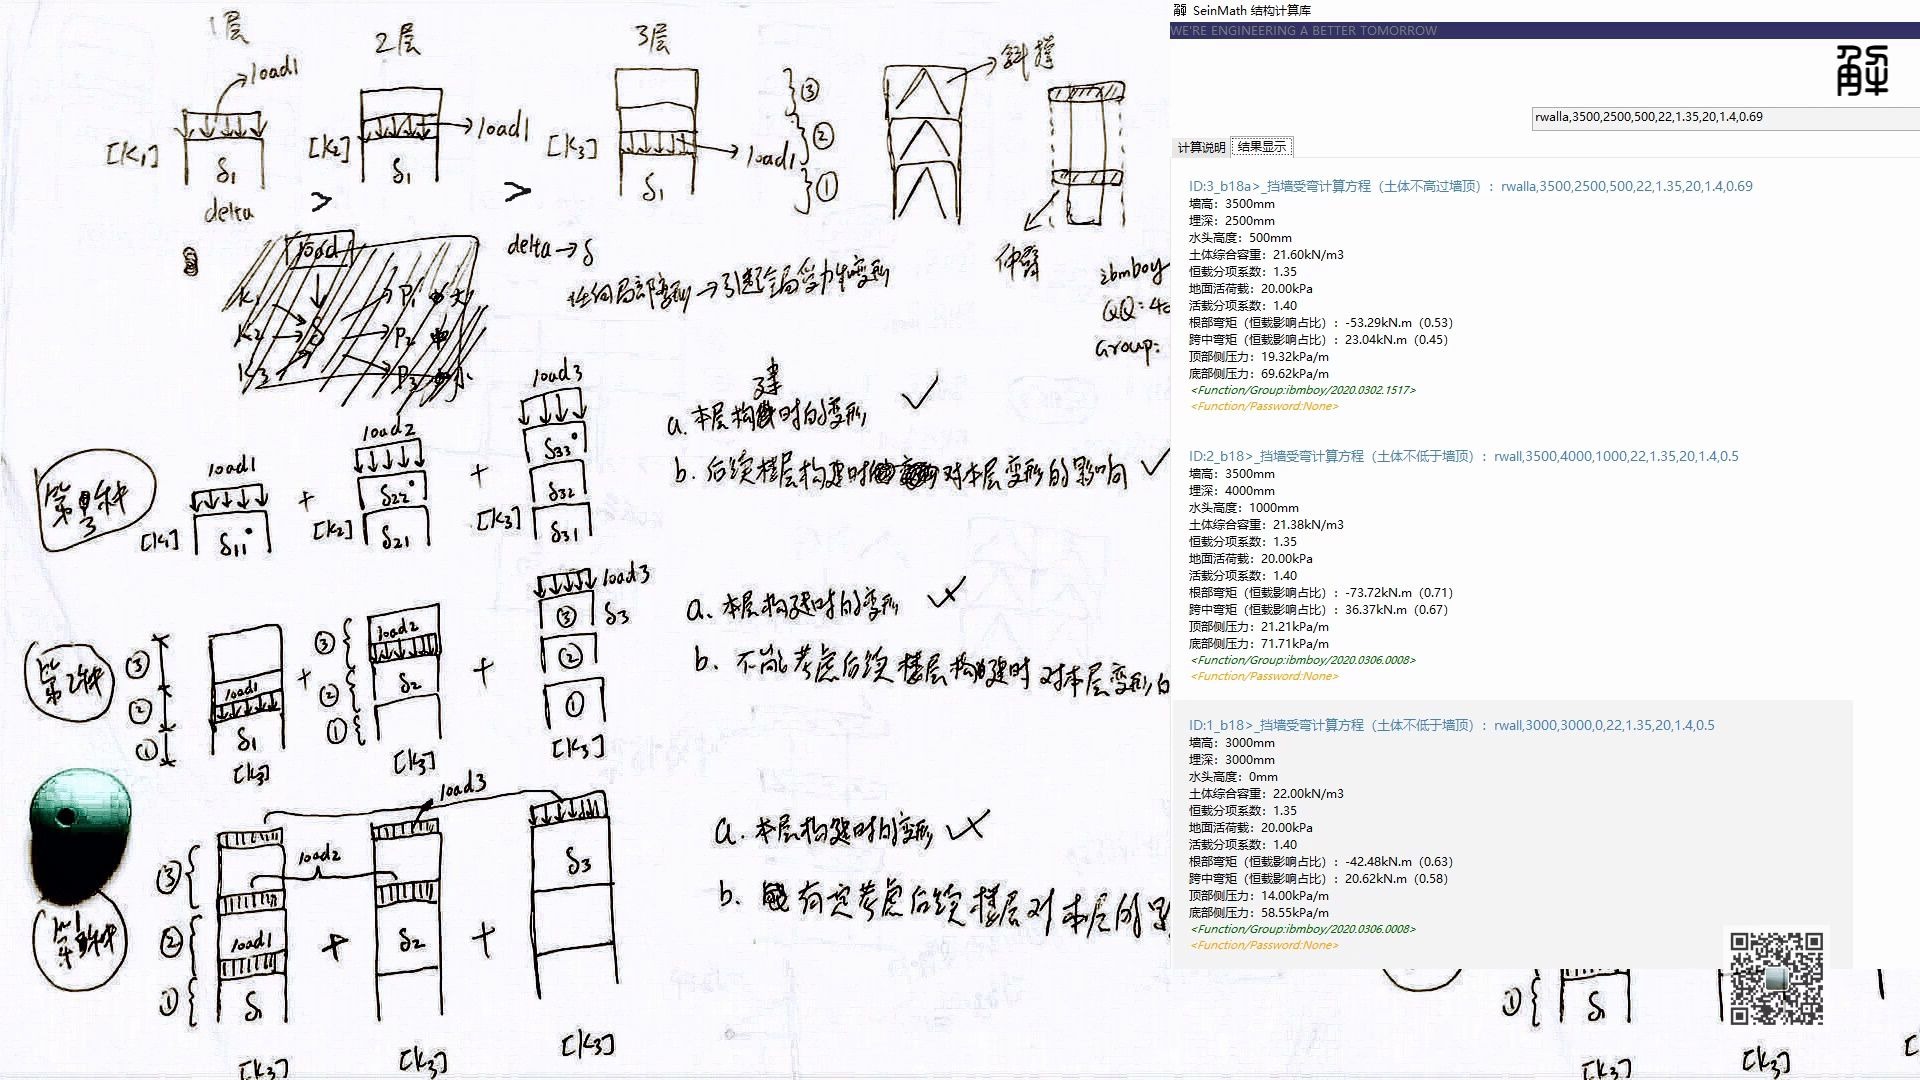 1层
2层
3层
load1
[K1]
δ1
delta
>
[K2]
load1
δ1
>
[K3]
load1
δ1
③
②
①
斜撑
伸臂
delta→δ
load
任何局部变形→引起全局受力和变形
K1
K2
K3
P1 大
P2 中
P3 小
ibmboy
QQ:
Group:
第3种
load1
[K1]
δ11
+
load2
δ22
[K2]
δ21
+
load3
δ33
δ32
[K3]
δ31
建
a.本层构建时的变形 ✓
b.后续楼层构建时对本层变形的影响 ✓
第2种
③
②
①
load1
δ1
[K3]
+
③
②
①
load2
δ2
[K3]
+
load3
③ δ3
②
①
[K3]
a.本层构建时的变形
b.不能考虑后续楼层构建时对本层变形
第1种
③
②
①
load2
load1
δ1
[K3]
+
load3
δ2
[K3]
+
δ3
[K3]
a.本层构建时的变形
b.有考虑后续楼层对本层的
解 SeinMath 结构计算库
WE'RE ENGINEERING A BETTER TOMORROW
解
rwalla,3500,2500,500,22,1.35,20,1.4,0.69
计算说明 结果显示
ID:3_b18a>_挡墙受弯计算方程（土体不高过墙顶）: rwalla,3500,2500,500,22,1.35,20,1.4,0.69
墙高: 3500mm
埋深: 2500mm
水头高度: 500mm
土体综合容重: 21.60kN/m3
恒载分项系数: 1.35
地面活荷载: 20.00kPa
活载分项系数: 1.40
根部弯矩（恒载影响占比）: -53.29kN.m（0.53）
跨中弯矩（恒载影响占比）: 23.04kN.m（0.45）
顶部侧压力: 19.32kPa/m
底部侧压力: 69.62kPa/m
<Function/Group:ibmboy/2020.0302.1517>
<Function/Password:None>
ID:2_b18>_挡墙受弯计算方程（土体不低于墙顶）: rwall,3500,4000,1000,22,1.35,20,1.4,0.5
墙高: 3500mm
埋深: 4000mm
水头高度: 1000mm
土体综合容重: 21.38kN/m3
恒载分项系数: 1.35
地面活荷载: 20.00kPa
活载分项系数: 1.40
根部弯矩（恒载影响占比）: -73.72kN.m（0.71）
跨中弯矩（恒载影响占比）: 36.37kN.m（0.67）
顶部侧压力: 21.21kPa/m
底部侧压力: 71.71kPa/m
<Function/Group:ibmboy/2020.0306.0008>
<Function/Password:None>
ID:1_b18>_挡墙受弯计算方程（土体不低于墙顶）: rwall,3000,3000,0,22,1.35,20,1.4,0.5
墙高: 3000mm
埋深: 3000mm
水头高度: 0mm
土体综合容重: 22.00kN/m3
恒载分项系数: 1.35
地面活荷载: 20.00kPa
活载分项系数: 1.40
根部弯矩（恒载影响占比）: -42.48kN.m（0.63）
跨中弯矩（恒载影响占比）: 20.62kN.m（0.58）
顶部侧压力: 14.00kPa/m
底部侧压力: 58.55kPa/m
<Function/Group:ibmboy/2020.0306.0008>
<Function/Password:None>
①
δ1
[K3]
[K3]